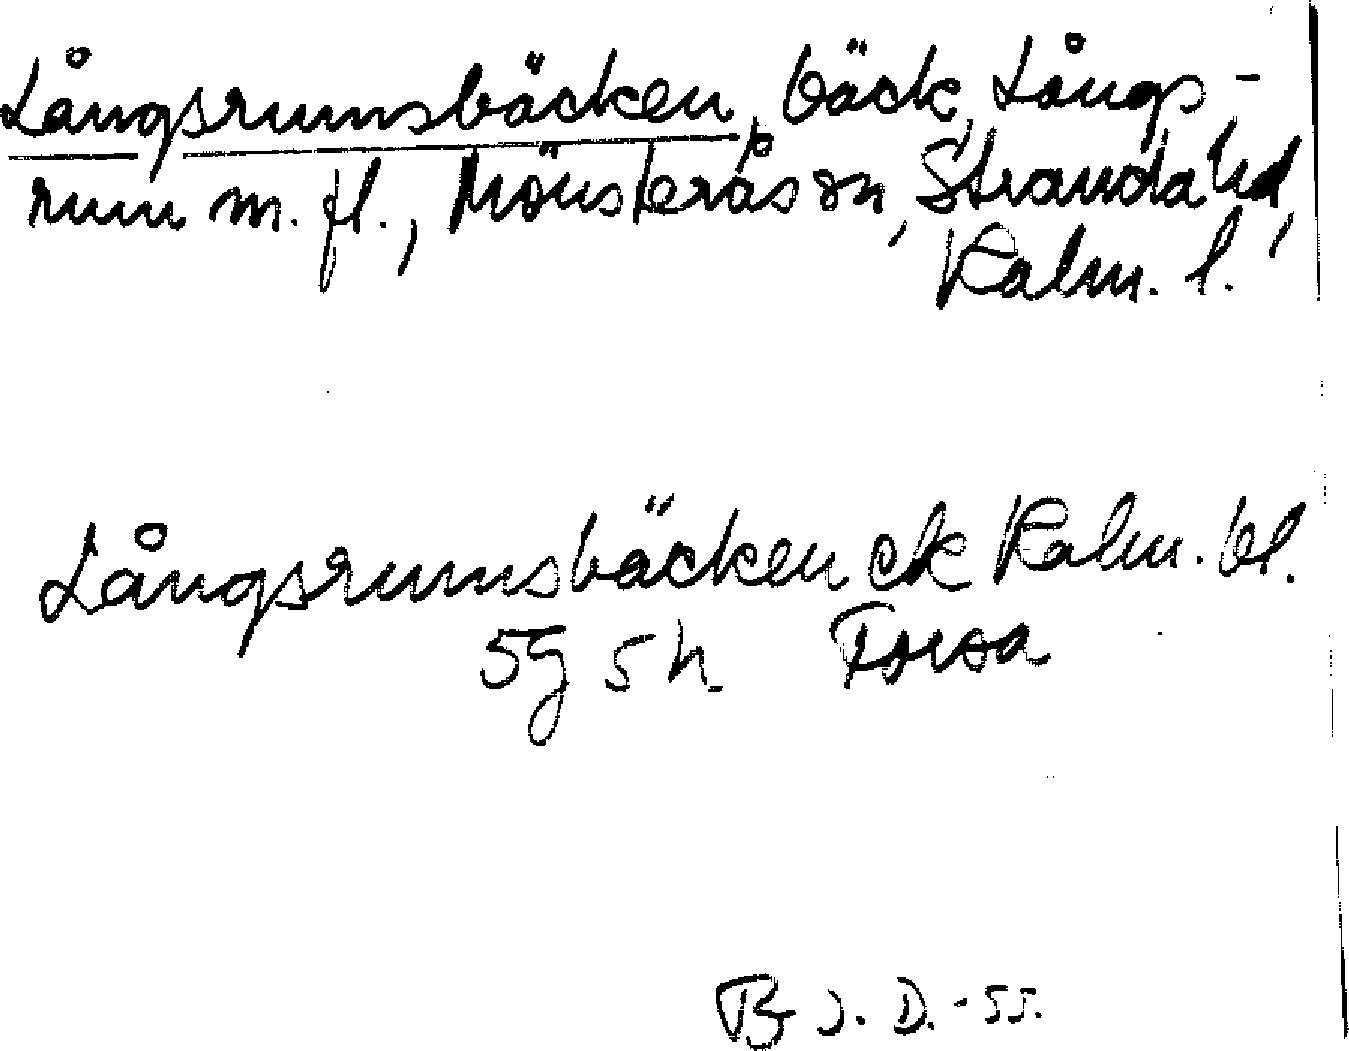 Långsrumsbäcken, bäck, Långs-
rum m. fl., Mönsterås sn, Stranda hd,
Kalm. l.
Långsrumsbäcken ek Kalm. bl.
5g 5h Forsa
B J. D. -55.